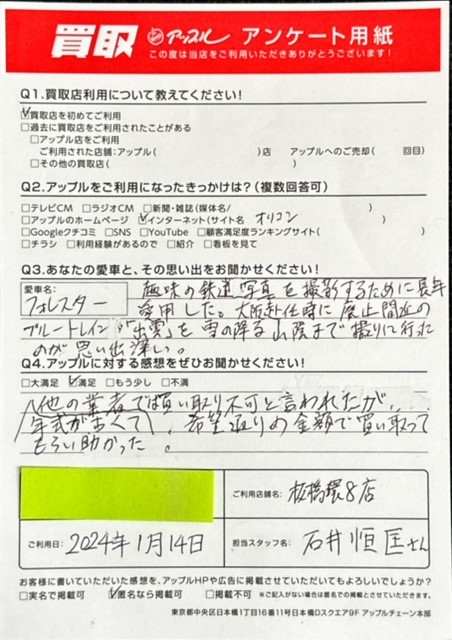 買取 アップル アンケート用紙
この度は当店をご利用いただきありがとうございます！
Q1.買取店利用について教えてください！
☑買取店を初めてご利用
□過去に買取店をご利用されたことがある
□アップル店をご利用
ご利用された店舗:アップル( )店 アップルへのご売却( 回目)
□その他の買取店( )
Q2.アップルをご利用になったきっかけは？(複数回答可)
□テレビCM □ラジオCM □新聞・雑誌(媒体名/ )
□アップルのホームページ ☑インターネット(サイト名 オリコン )
□Googleクチコミ □SNS □YouTube □顧客満足度ランキングサイト( )
□チラシ □利用経験があるので □紹介 □看板を見て
Q3.あなたの愛車と、その思い出をお聞かせください！
愛車名: フォレスター
趣味の鉄道写真を撮影するために長年
愛用した。大阪赴任時に廃止間近の
ブルートレイン「出雲」を雪の降る山陰まで撮りに行った
のが思い出深い。
Q4.アップルに対する感想をぜひお聞かせください！
□大満足 ☑満足 □もう少し □不満
他の業者では買い取り不可と言われたが、
年式が古くて 希望通りの金額で買い取って
もらい助かった。
ご利用店舗名: 板橋環8店
ご利用日: 2024年1月14日
担当スタッフ名: 石井恒匡さん
お客様に書いていただいた感想を、アップルHPや広告に掲載させていただいてもよろしいでしょうか？
□実名で掲載可 ☑匿名なら掲載可 □掲載不可 ※ご記入がない場合は匿名での掲載とさせていただきます。
東京都中央区日本橋1丁目16番11号日本橋Dスクエア9F アップルチェーン本部